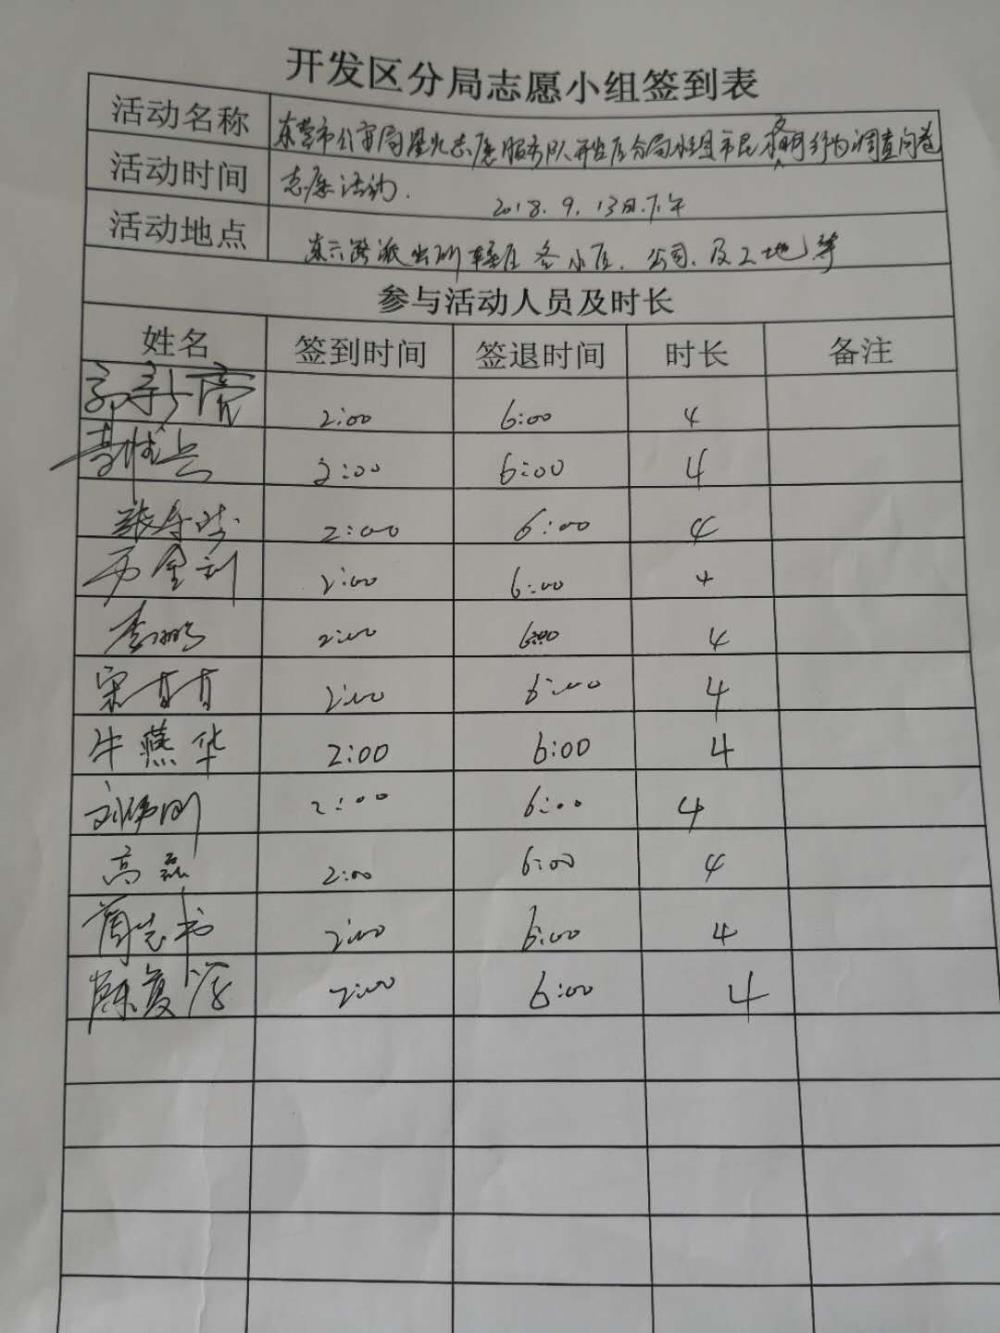 开发区分局志愿小组签到表
活动名称 东营市公安局星火志愿服务队开发区分局小组市民文明行为调查问卷
志愿活动.
活动时间 2018.9.13日.下午
活动地点 东六路派出所辖区各小区、公司、及工地等
参与活动人员及时长
姓名 签到时间 签退时间 时长 备注
2:00 6:00 4
2:00 6:00 4
2:00 6:00 4
2:00 6:00 4
李鹏 2:00 6:00 4
宋肖肖 2:00 6:00 4
牛燕华 2:00 6:00 4
2:00 6:00 4
高磊 2:00 6:00 4
2:00 6:00 4
陈复学 2:00 6:00 4